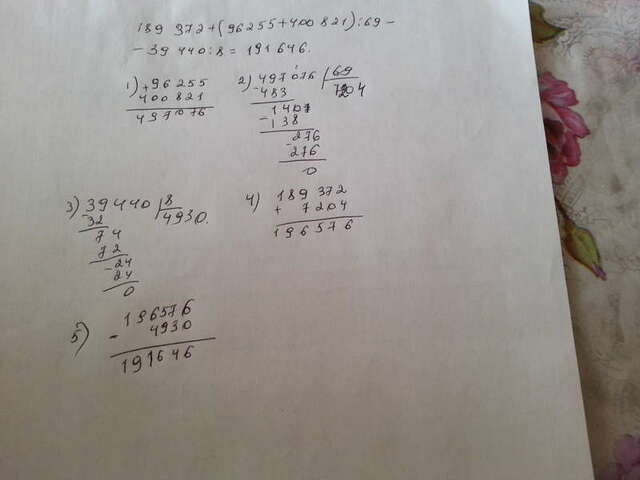 189 372+(96255+400 821):69-
-39 440:8=191 646.
1) +96 255
400 821
497076
2) -497076 |69
483 7204
1407
-138
-276
276
0
3) 39440 |8
-32 4930.
74
72
-24
24
0
4) 189 372
+ 7204
196576
5) 196576
- 4930
191646